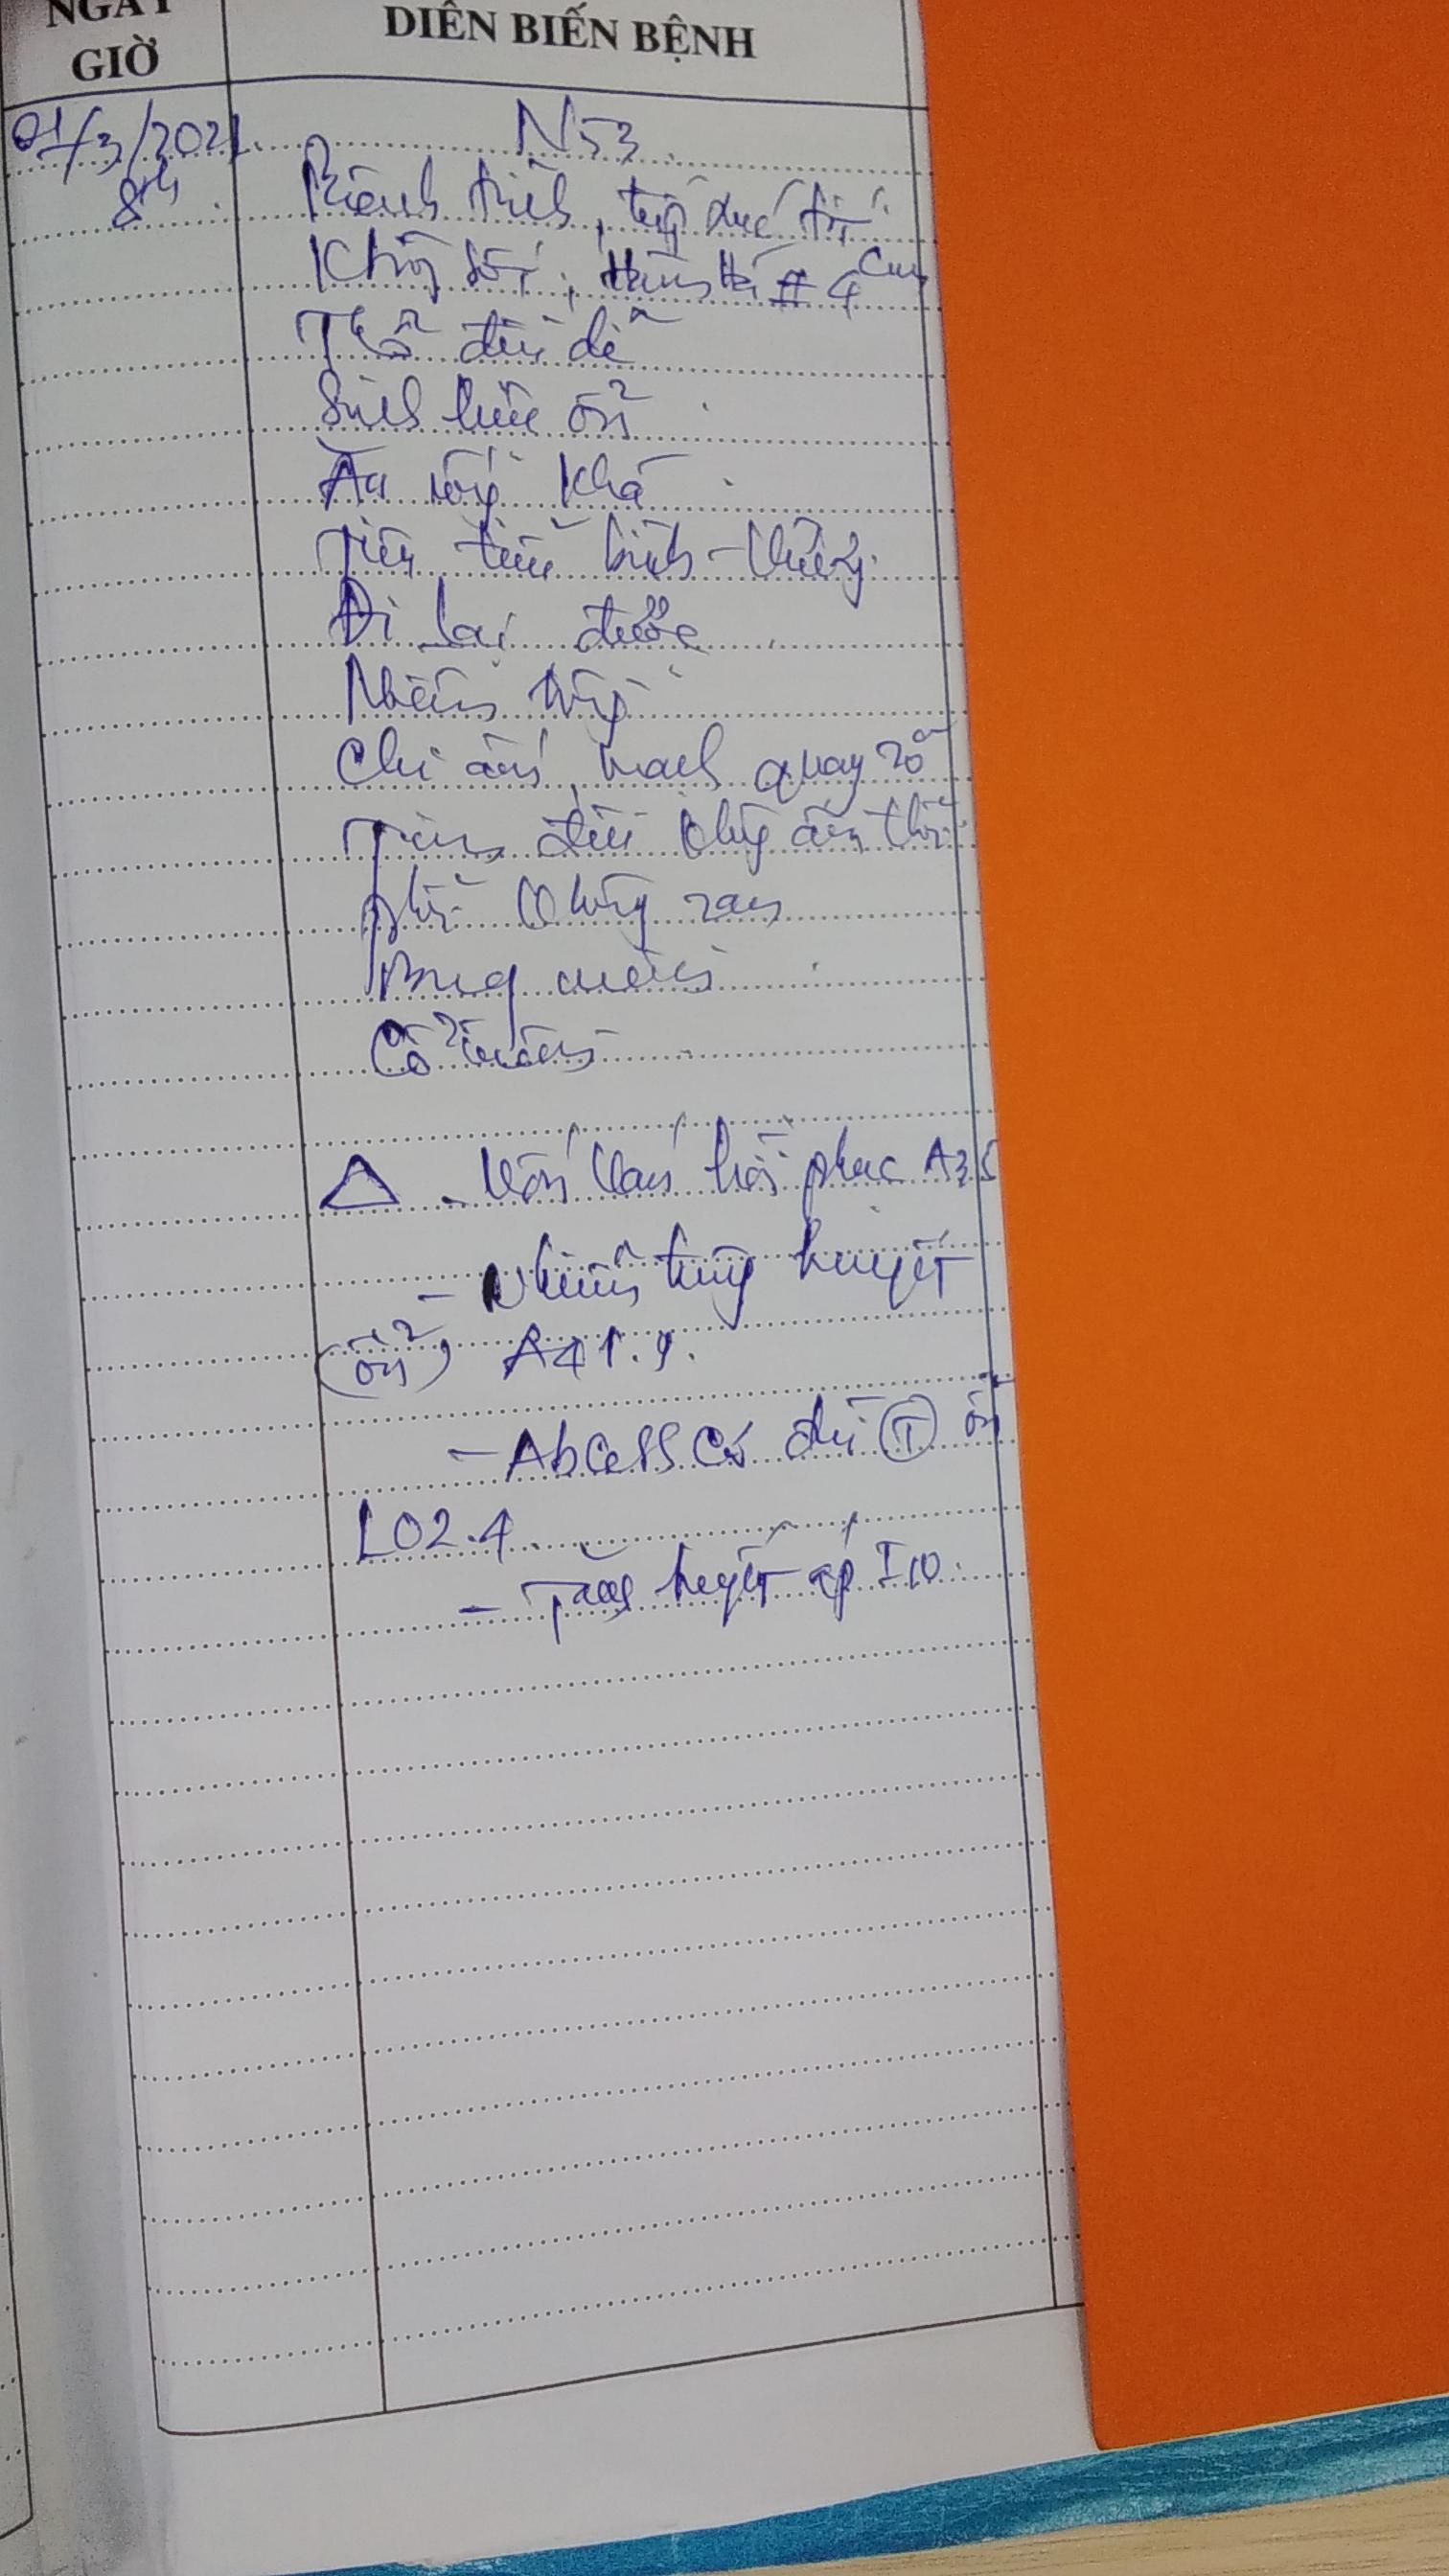 NGÀY GIỜ
DIỄN BIẾN BỆNH
01/3/2021
N53
8h
Bệnh tỉnh, tiếp xúc tốt
Không sốt, # 4 cm
Thở đều dễ
Sinh hiệu ổn
Ăn uống khá
Tiêu tiểu bình thường
Đi lại được
Niêm hồng
Chi ấm, mạch quay rõ
Tim đều không âm thổi
Phổi không ran
Bụng mềm
Cổ mềm
△ - Uốn ván hồi phục A35
- Nhiễm trùng huyết
(ổn) A41.9.
- Abcess cũ đùi (T) ổn
L02.4
- Tăng huyết áp I10.